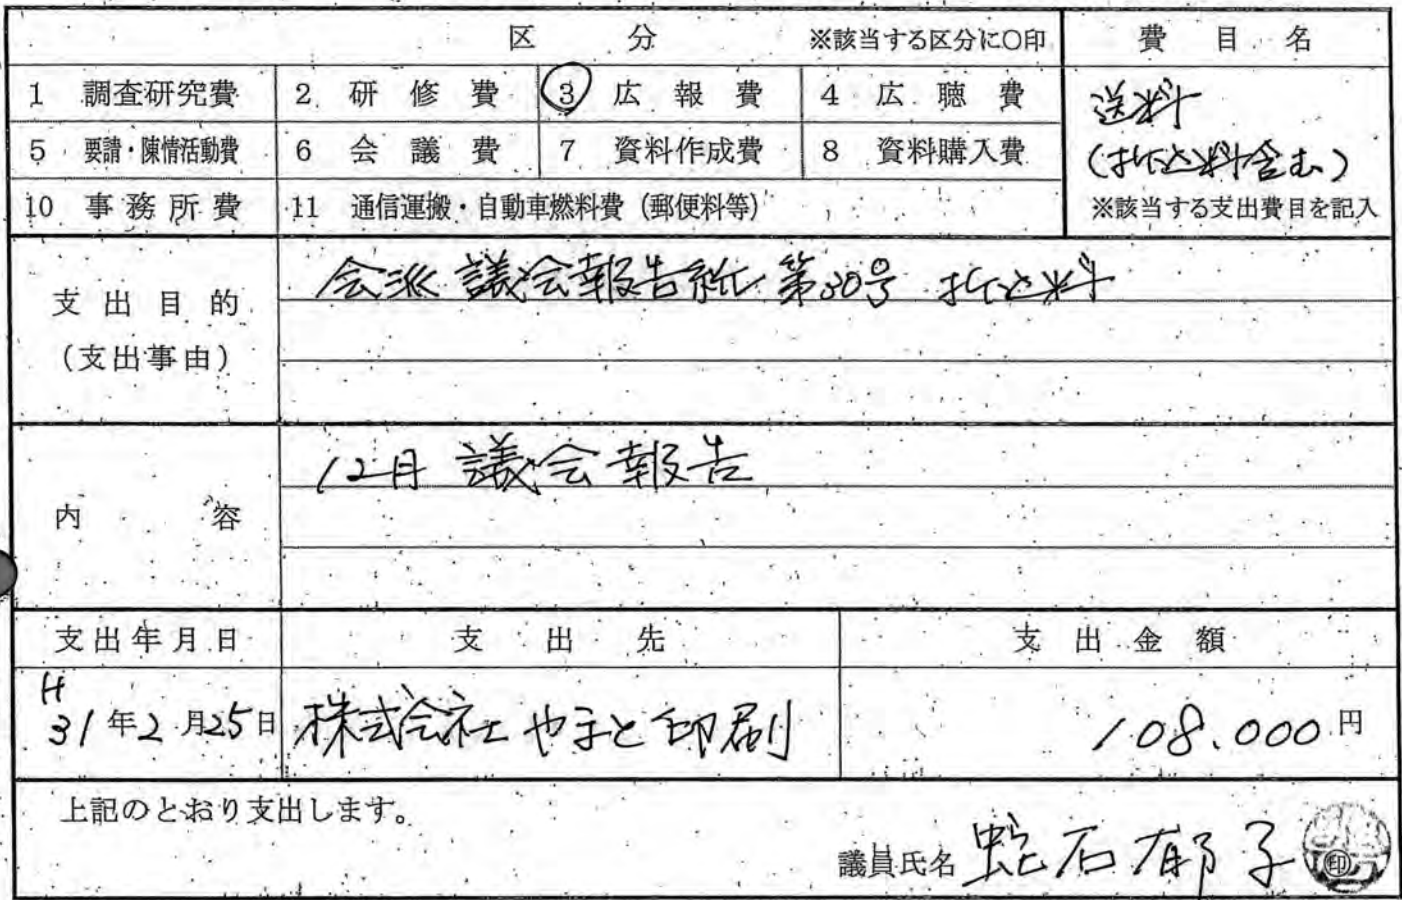 区 分 ※該当する区分に○印 費 目 名
1 調査研究費 2 研 修 費 3 広 報 費 4 広 聴 費 送料
5 要請・陳情活動費 6 会 議 費 7 資料作成費 8 資料購入費 (折込料含む)
10 事 務 所 費 11 通信運搬・自動車燃料費(郵便料等) ※該当する支出費目を記入
支 出 目 的 会派 議会報告紙 第30号 折込料
(支出事由)
内 容 12月 議会報告
支出年月日 支 出 先 支 出 金 額
H
31年2月25日 株式会社 やまと印刷 108.000円
上記のとおり支出します。
議員氏名 蛇石郁子 ㊞